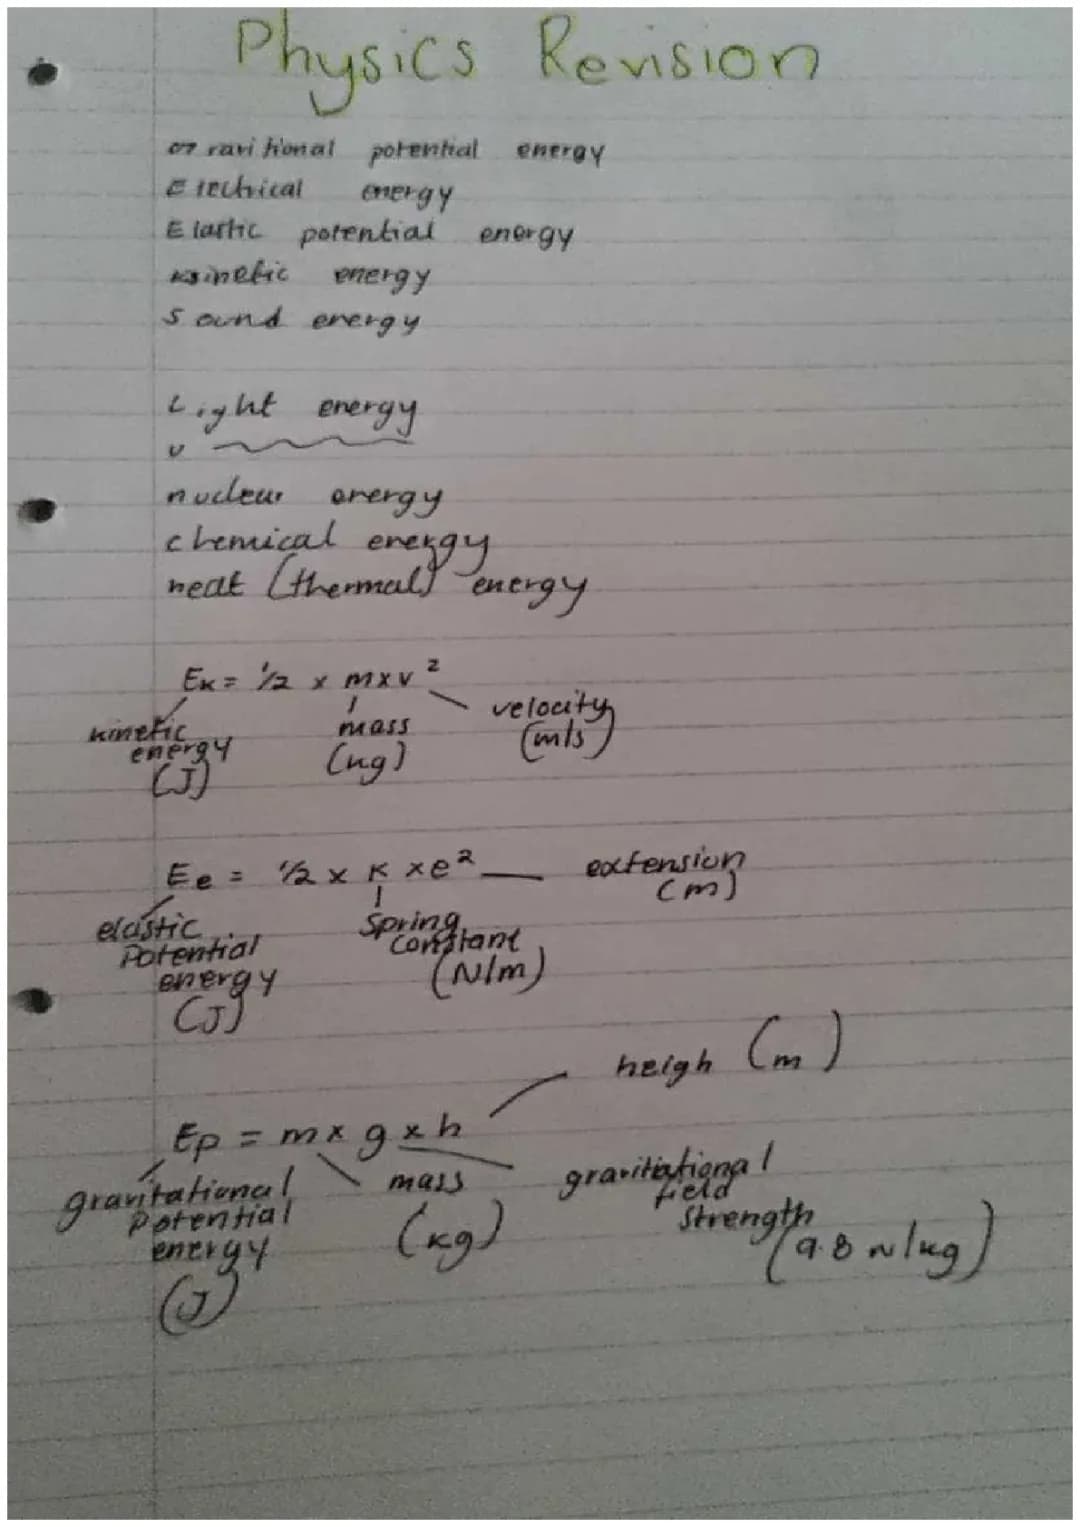 Physics Revision
Gravitional potential energy
Electrical energy
Elastic potential energy
Kinetic energy
Sound energy
Light energy
nuclear energy
chemical energy
heat (thermal) energy
Ek = 1/2 x m x v²
kinetic energy (J)
mass (kg)
velocity (m/s)
Ee = 1/2 x K x e²
elastic Potential energy (J)
Spring constant (N/m)
extension (m)
heigh (m)
Ep = m x g x h
gravitational Potential energy (J)
mass (kg)
gravitiational field Strength (9.8 N/kg)